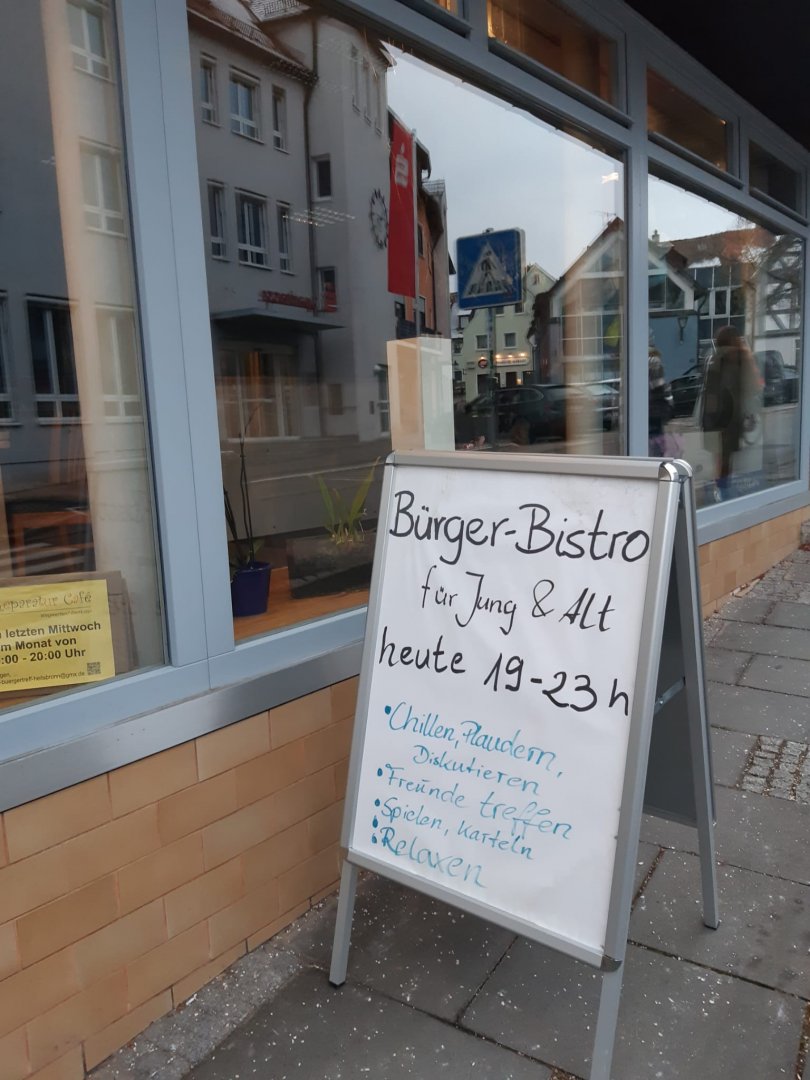 Bürger-Bistro
für Jung & Alt
heute 19-23 h
• Chillen, Plaudern,
Diskutieren
• Freunde treffen
• Spielen, Karteln
• Relaxen
Reparatur Café
letzten Mittwoch
m Monat von
:00 - 20:00 Uhr
-buergertreff-heilsbronn@gmx.de